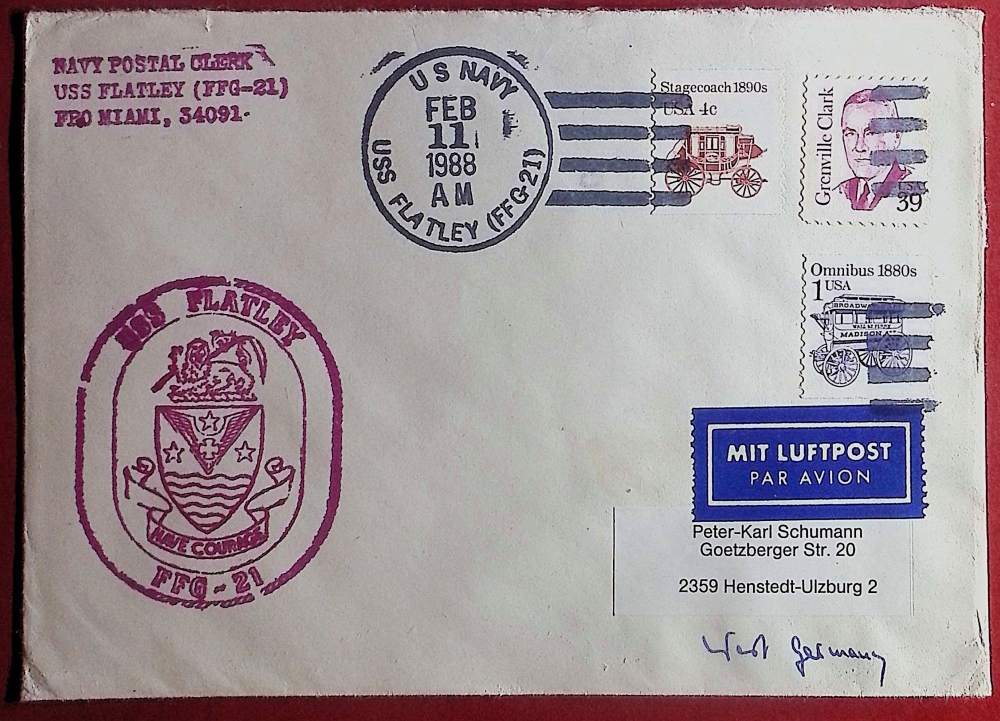 NAVY POSTAL CLERK
USS FLATLEY (FFG-21)
FPO MIAMI, 34091-
U S NAVY
FEB
11
1988
AM
USS FLATLEY (FFG-21)
Stagecoach 1890s
USA 4c
Grenville Clark
USA
39
Omnibus 1880s
1 USA
BROADWAY
WALL ST FERRY
MADISON AV
USS FLATLEY
HAVE COURAGE
FFG-21
MIT LUFTPOST
PAR AVION
Peter-Karl Schumann
Goetzberger Str. 20
2359 Henstedt-Ulzburg 2
West Germany